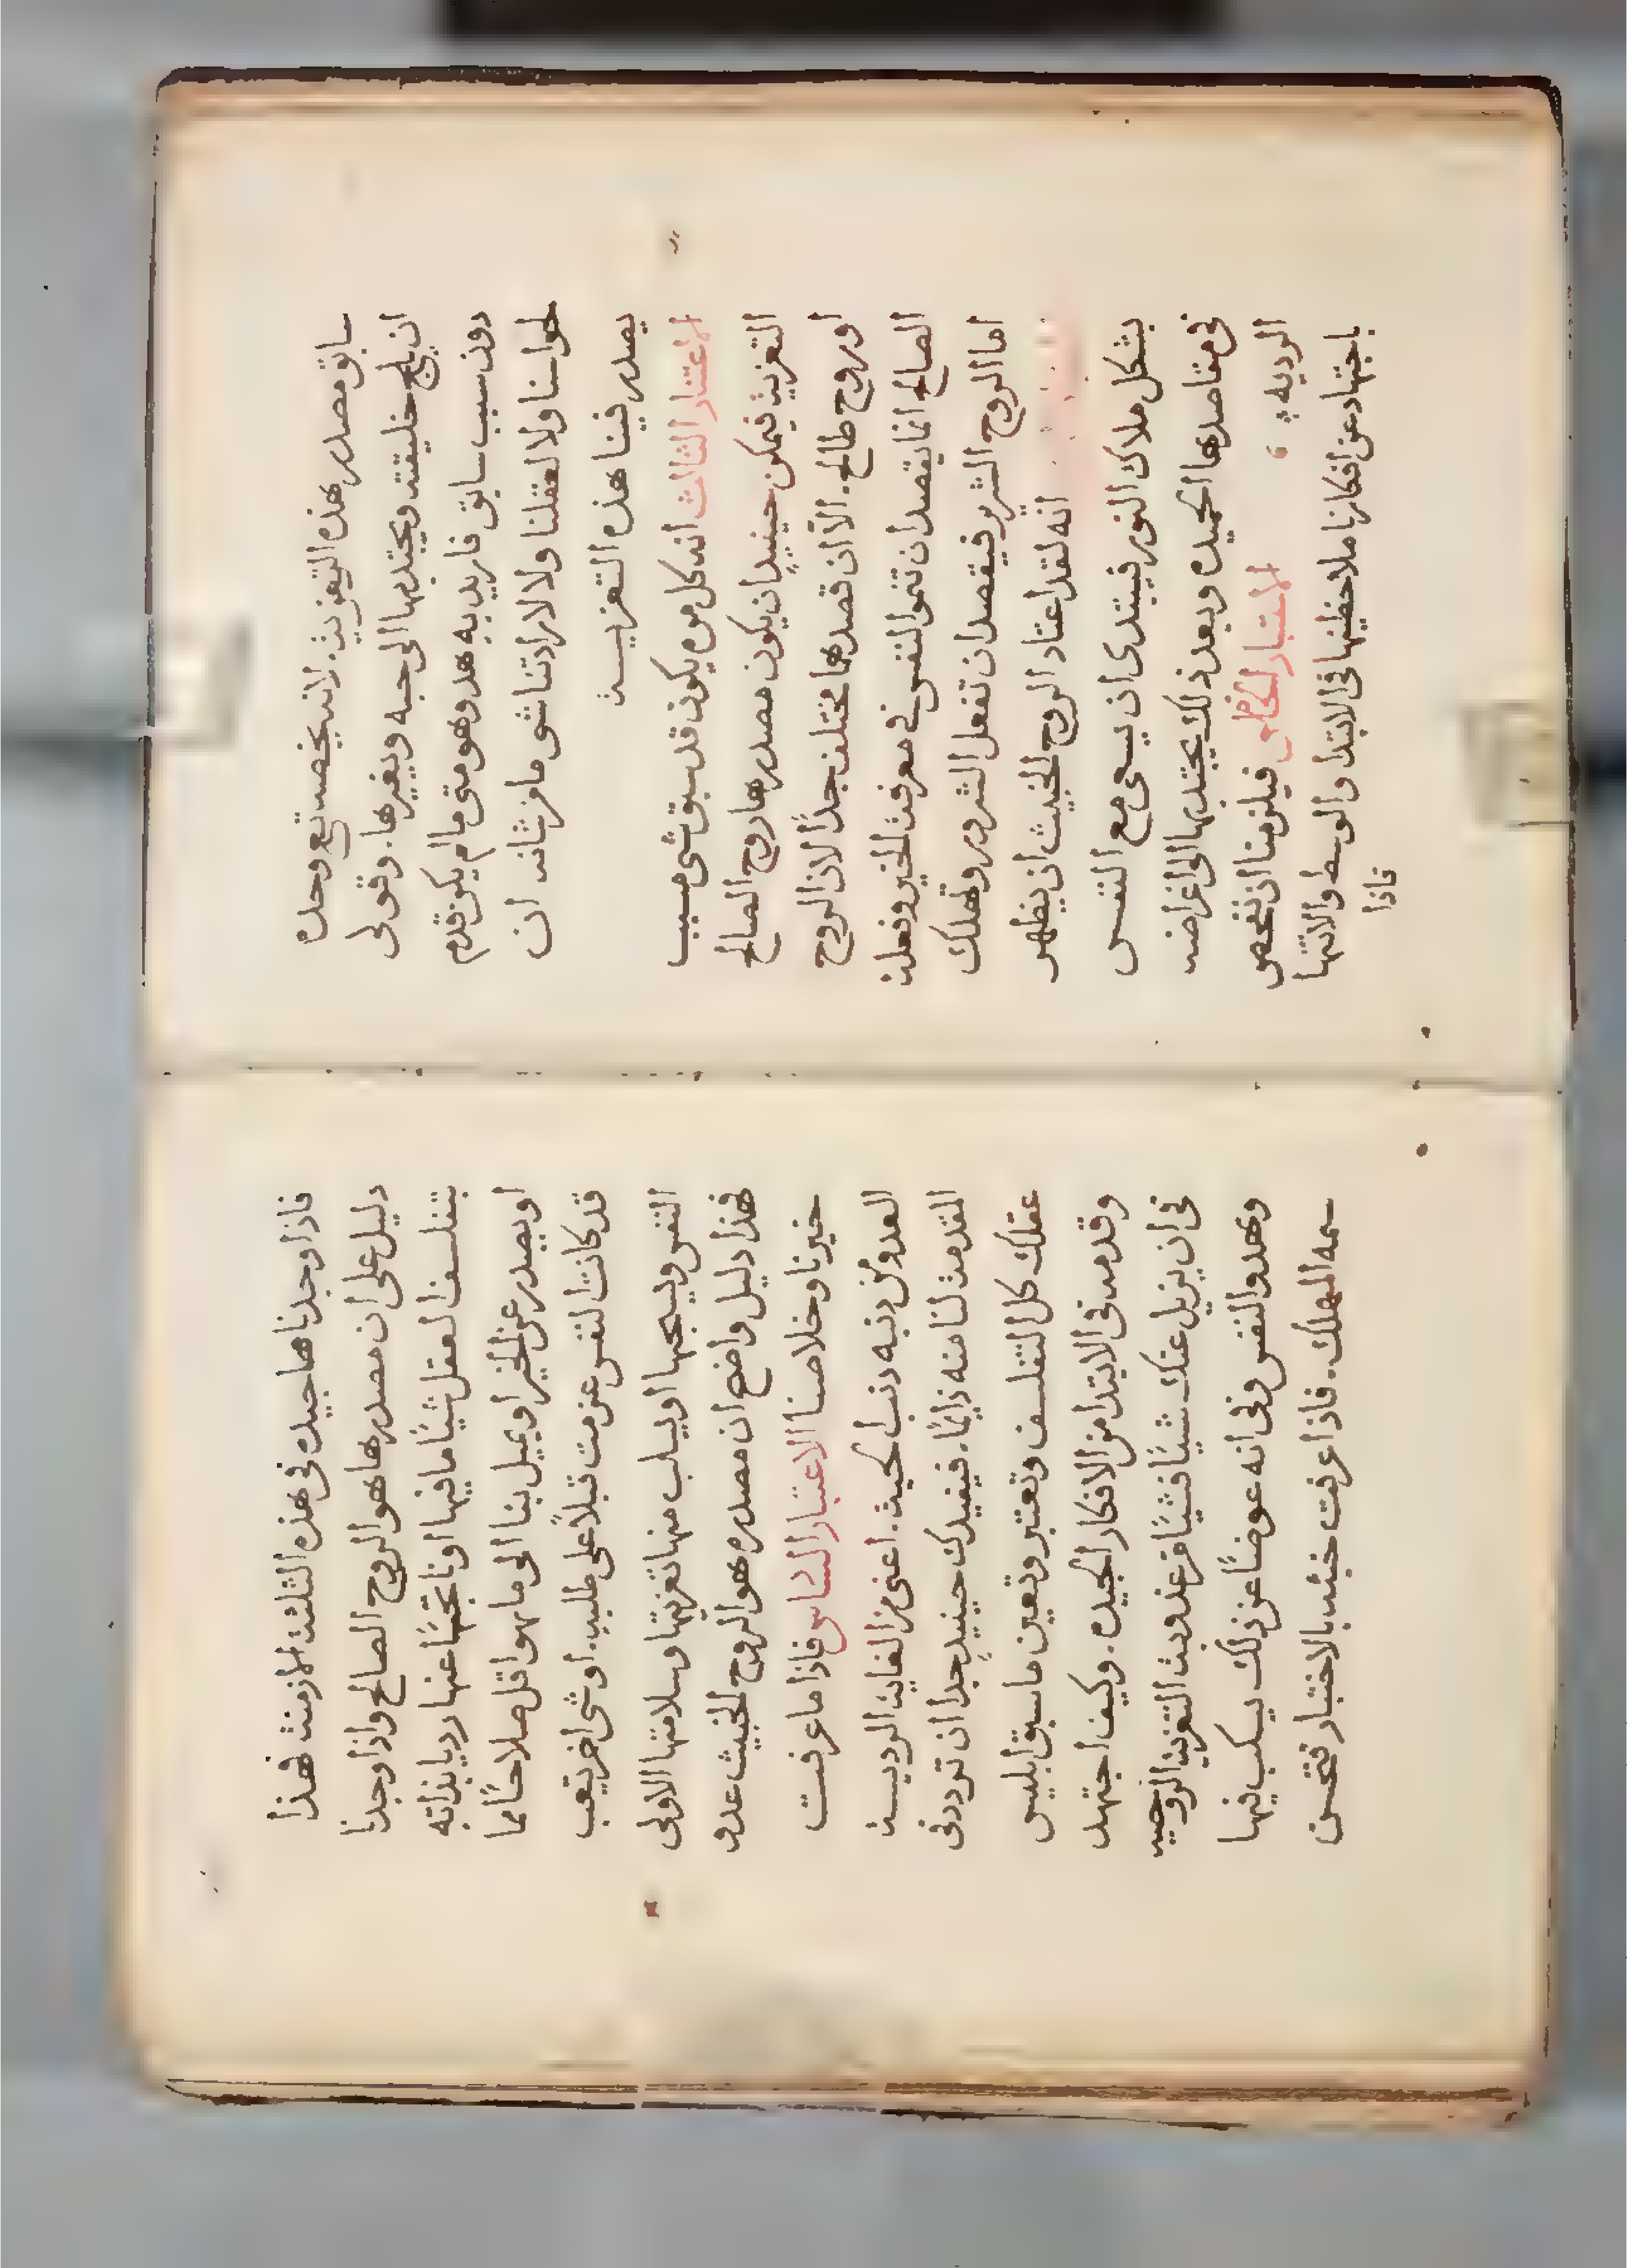 سابق مصدر هذه التعزيه. لانه يخصه تع وحده
ان يلج خليقته ويجتدبها الى حبه ويغيرها. وقولى
دون سبب سابق فاريد به هدو وهو متى ما لم يكن قدم
لحواسنا ولا لعقلنا ولا لارادتنا شى ما من شانه ان
يصدر فينا هذه التعزيـــه
الاعتبار الثالث انه كل مره يكون قد سبق شى مسبب
التعزيه فيمكن حينيدٍ ان يكون مصدرها روح الصالح
او روح طالح. الّا ان قصدهما مختلف جدًا لان الروح
الصالح انما يقصد ان تنموا النفس فى معرفت الخير وفعله
اما الروح الشرير فيقصد ان تفعل الشرور وتهلك
انه لقد اعتاد الروح الخبيث ان يظهر
بشكل ملاك النور فيبتدى ان يسعى مع النفس
فى مقاصدها الحميده وبعد ذلك يجتدبها الى اغراضه
الرديه فيلزمنا ان نفحص
باجتهاد عن افكارنا ملاحظينها فى الابتدا والوسط والانتها
فاذا
فاذا وجدناها جيده فى هذه الثلثه الازمنه فهذا
دليل على ان مصدرها هو الروح الصالح واذا وجدنا
بتفلسف العقل شيًا ما فيها او ناتجًا عنها رديا بذاته
او يصدر عن الخير او يميل بنا الى ما هو اقل صلاحًا مما
قد كانت النفس عزمت قبلاً على طلبه. او شى اخر يتعب
النفس ويسجها او يسلب منها تعزيتها وسلامتها الاولى
فهذا دليل واضح ان مصدره هو الروح الخبيث عدو
خيرنا وخلاصنا الاعتبار السادس فاذا ما عرفت
العدو من دنبه دنب الحيه. اعنى من الغايه الرديـــه
المقدمه لنا منه دايمًا. فيفيدك حينيدٍ جدا ان تردد فى
عقلك كل التفلسف وتعتبر وتعين ما سبق ابليس
وقدمه فى الابتدا من الافكار الجيده. وكيف اجتهد
فى ان يزيل عنك شيًا فشيًا من عذوبة التعزيه الروحيه
وهدو النفس وفى انه عوضًا عن ذلك يسكب فيها
سمه المهلك. فاذا عرفت خبثه بالاختبار تحترس